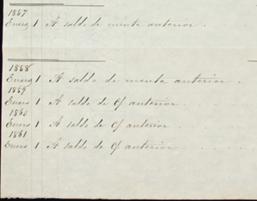 1867
Enero 1 A saldo de cuenta anterior.
1868
Enero 1 A saldo de cuenta anterior.
1859
Enero 1 A saldo de C/ anterior
1860
Enero 1 A saldo de C/ anterior
1861
Enero 1 A saldo de C/ anterior